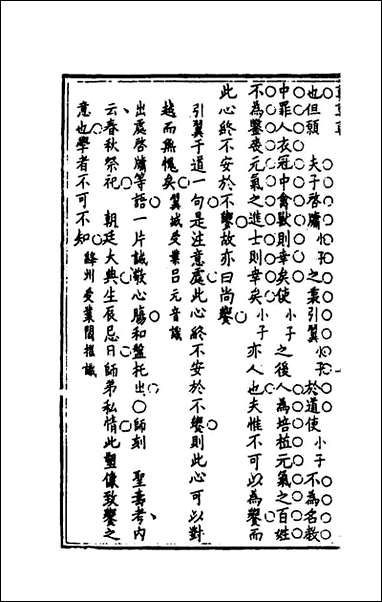 也但願　夫子啓牖小子之蒙引翼小子於道使小子不為名教
中罪人衣冠中禽獸則幸矣使小子之後人為培植元氣之百姓
不為鑿喪元氣之進士則幸矣小子亦人也夫惟不可以為饗而
此心終不安於不饗故亦曰尚饗
引翼于道一句是注意處此心終不安於不饗則此心可以對
越而無愧矣冀城受業呂元音識
出處啓牖等語一片誠敬心腸和盤托出○師刻　聖壽考內
云春秋祭祀　朝廷大典生辰忌日師弟私情此塑像致饗之
意也學者不可不知絳州受業閻擢識